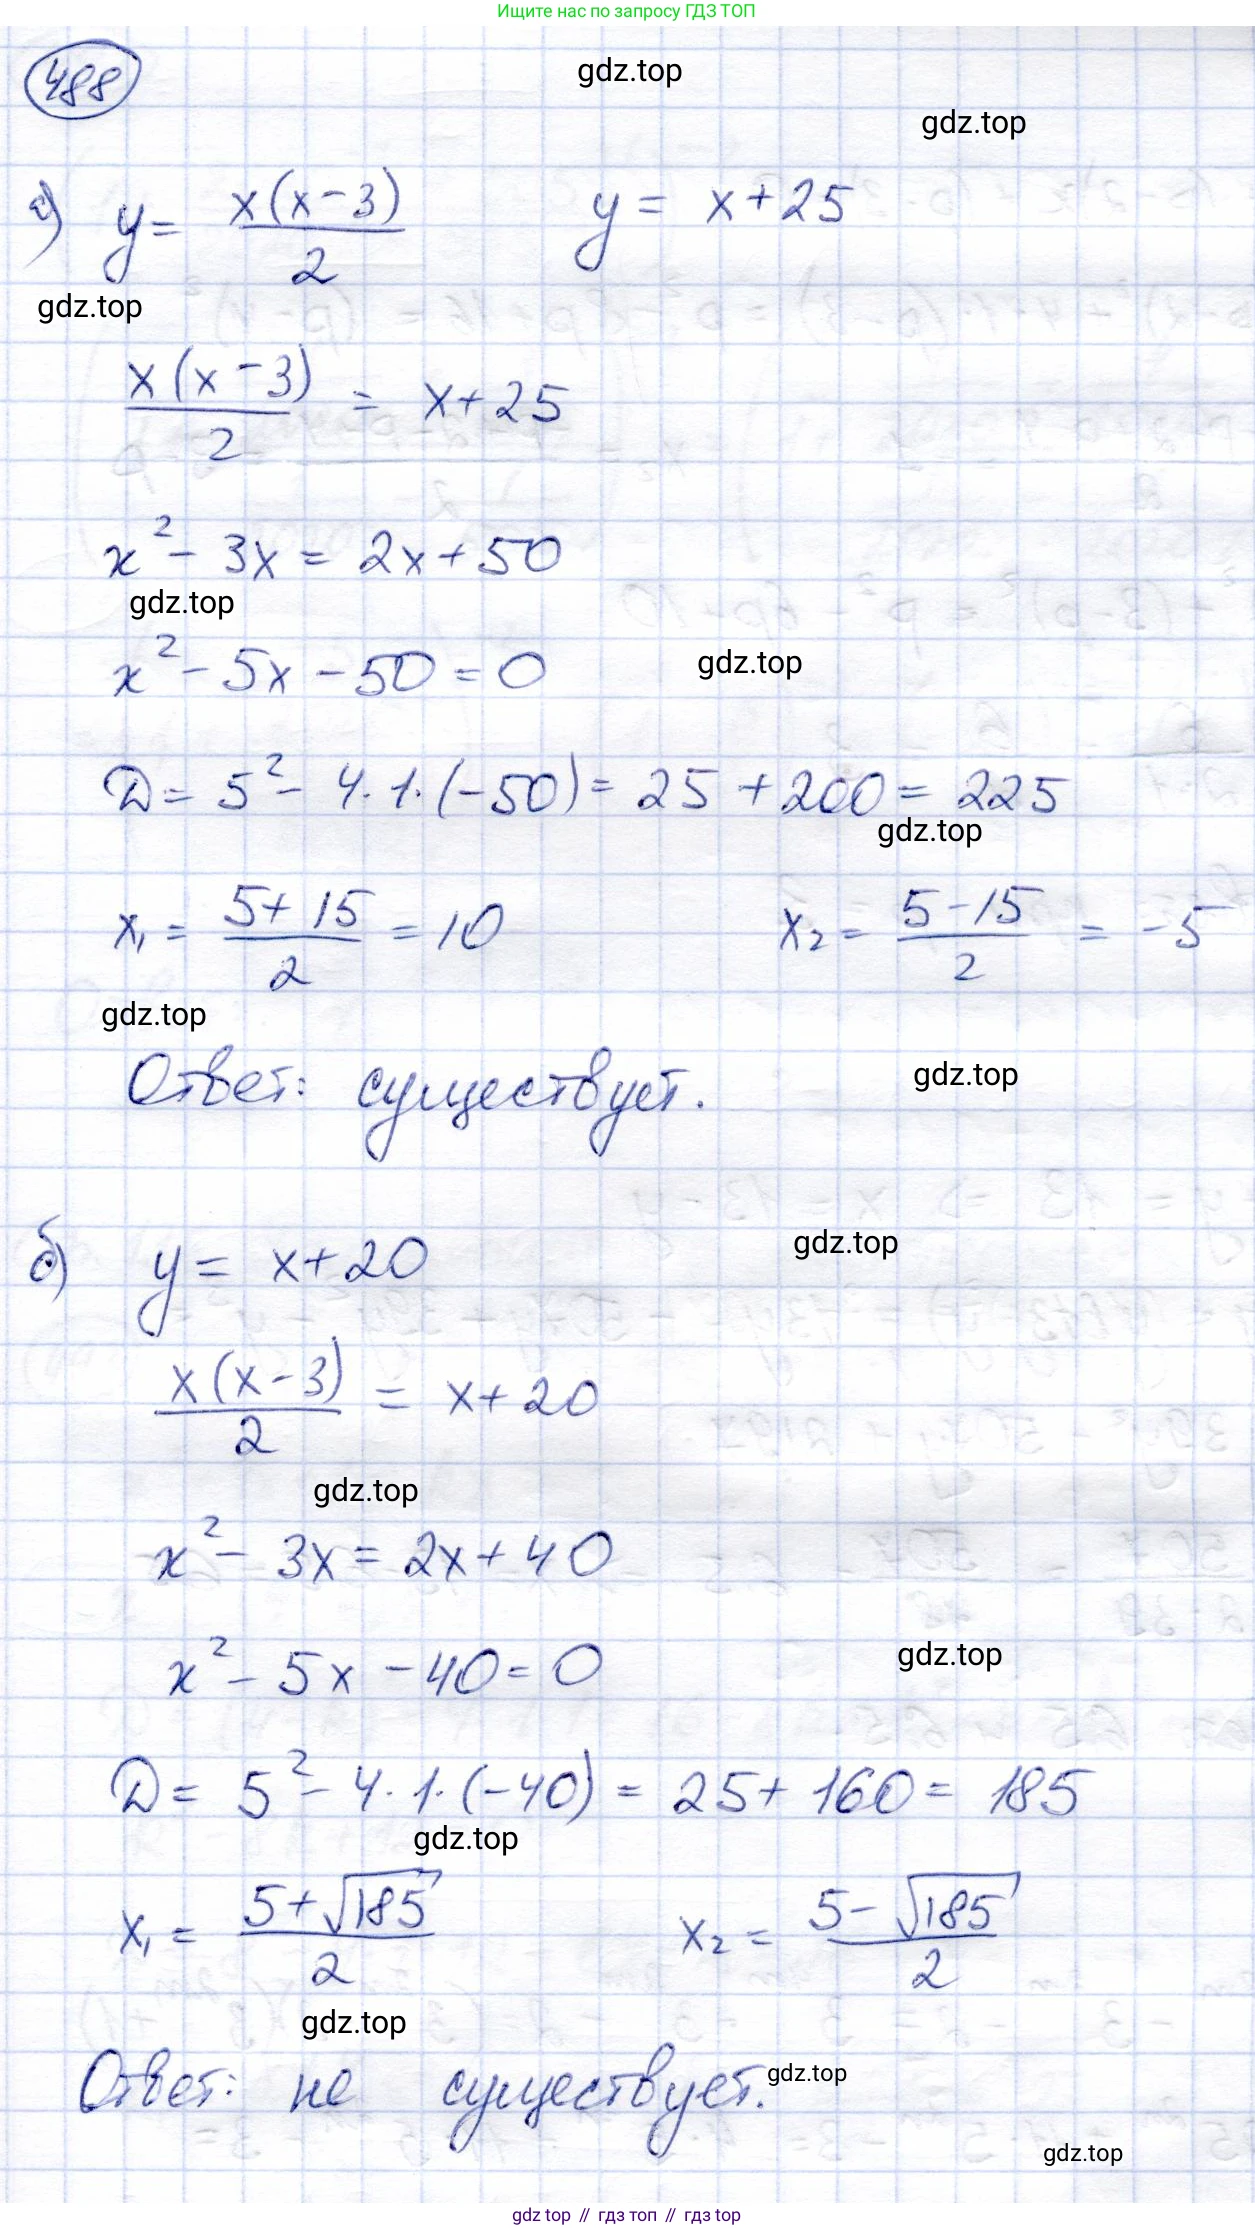 Ищите нас по запросу ГДЗ ТОП
488
gdz.top
gdz.top
а) y = x(x-3)/2     y = x+25
gdz.top
x(x-3)/2 = x+25
x² - 3x = 2x+50
gdz.top
x² - 5x - 50 = 0
gdz.top
D = 5² - 4·1·(-50) = 25 + 200 = 225
gdz.top
x₁ = (5+15)/2 = 10     x₂ = (5-15)/2 = -5
gdz.top
Ответ: существует.
gdz.top
б) y = x+20
gdz.top
x(x-3)/2 = x+20
gdz.top
x² - 3x = 2x+40
x² - 5x - 40 = 0
gdz.top
D = 5² - 4·1·(-40) = 25+160 = 185
gdz.top
x₁ = (5+√185)/2     x₂ = (5-√185)/2
gdz.top
Ответ: не существует.
gdz.top
gdz.top
gdz top // гдз топ // gdz top